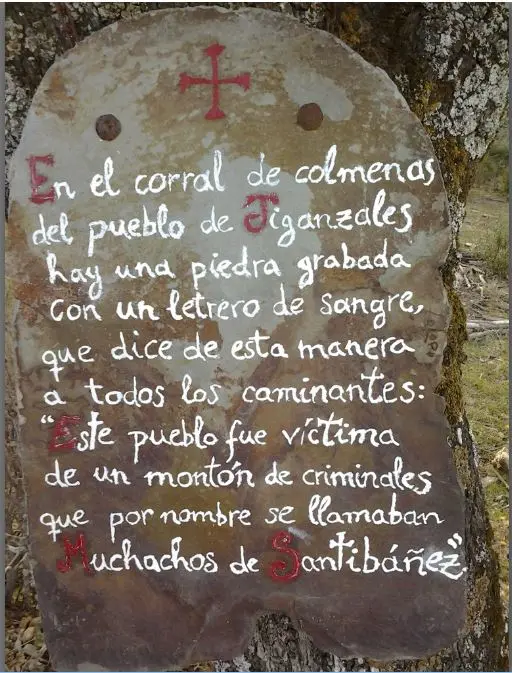 En el corral de colmenas
del pueblo de Jiganzales
hay una piedra grabada
con un letrero de sangre,
que dice de esta manera
a todos los caminantes:
"Este pueblo fue víctima
de un montón de criminales
que por nombre se llamaban
Muchachos de Santibáñez".